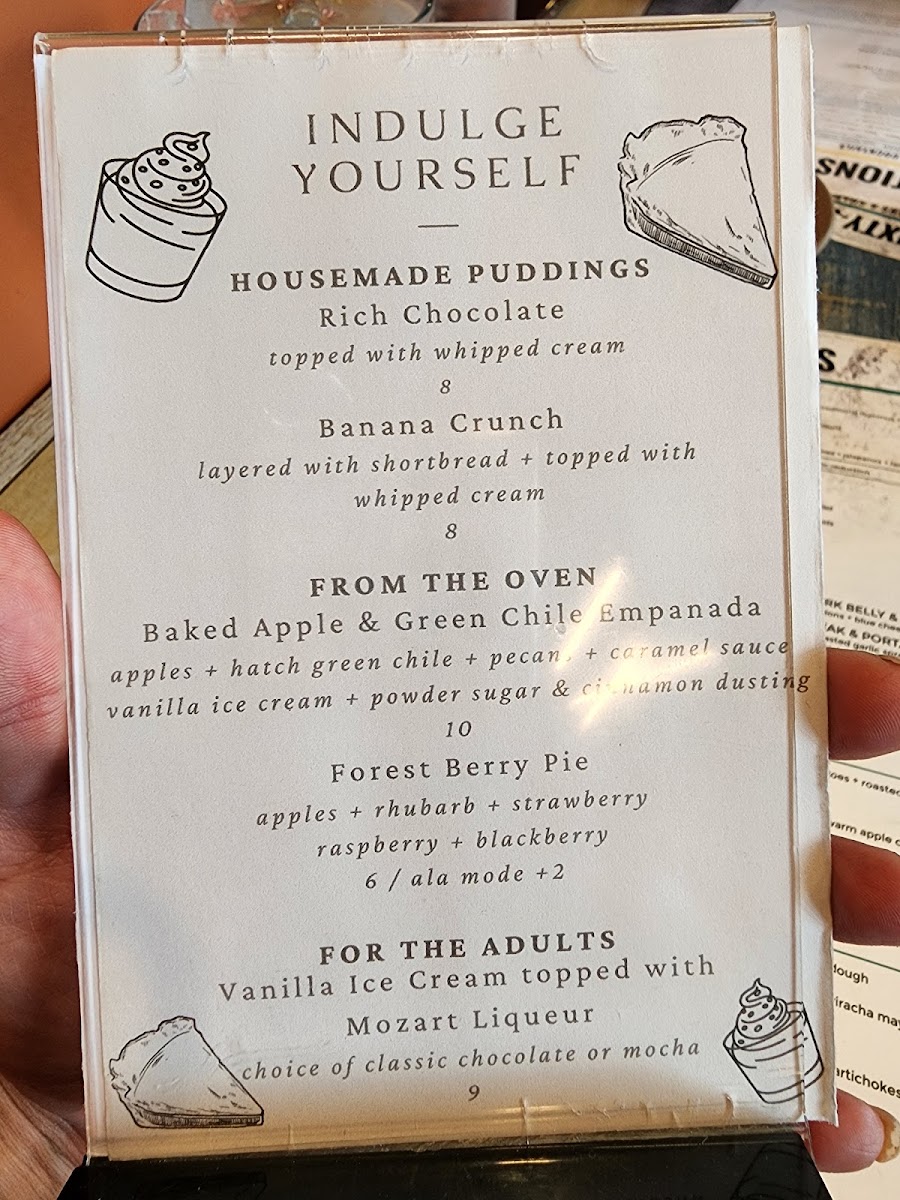 INDULGE
YOURSELF
HOUSEMADE PUDDINGS
Rich Chocolate
topped with whipped cream
8
Banana Crunch
layered with shortbread + topped with
whipped cream
8
FROM THE OVEN
Baked Apple & Green Chile Empanada
apples + hatch green chile + pecans + caramel sauce
vanilla ice cream + powder sugar & cinnamon dusting
10
Forest Berry Pie
apples + rhubarb + strawberry
raspberry + blackberry
6 / ala mode +2
FOR THE ADULTS
Vanilla Ice Cream topped with
Mozart Liqueur
choice of classic chocolate or mocha
9
BELLY &
+ blue
& PORT
garlic
+ roasted
warm apple
dough
artichokes